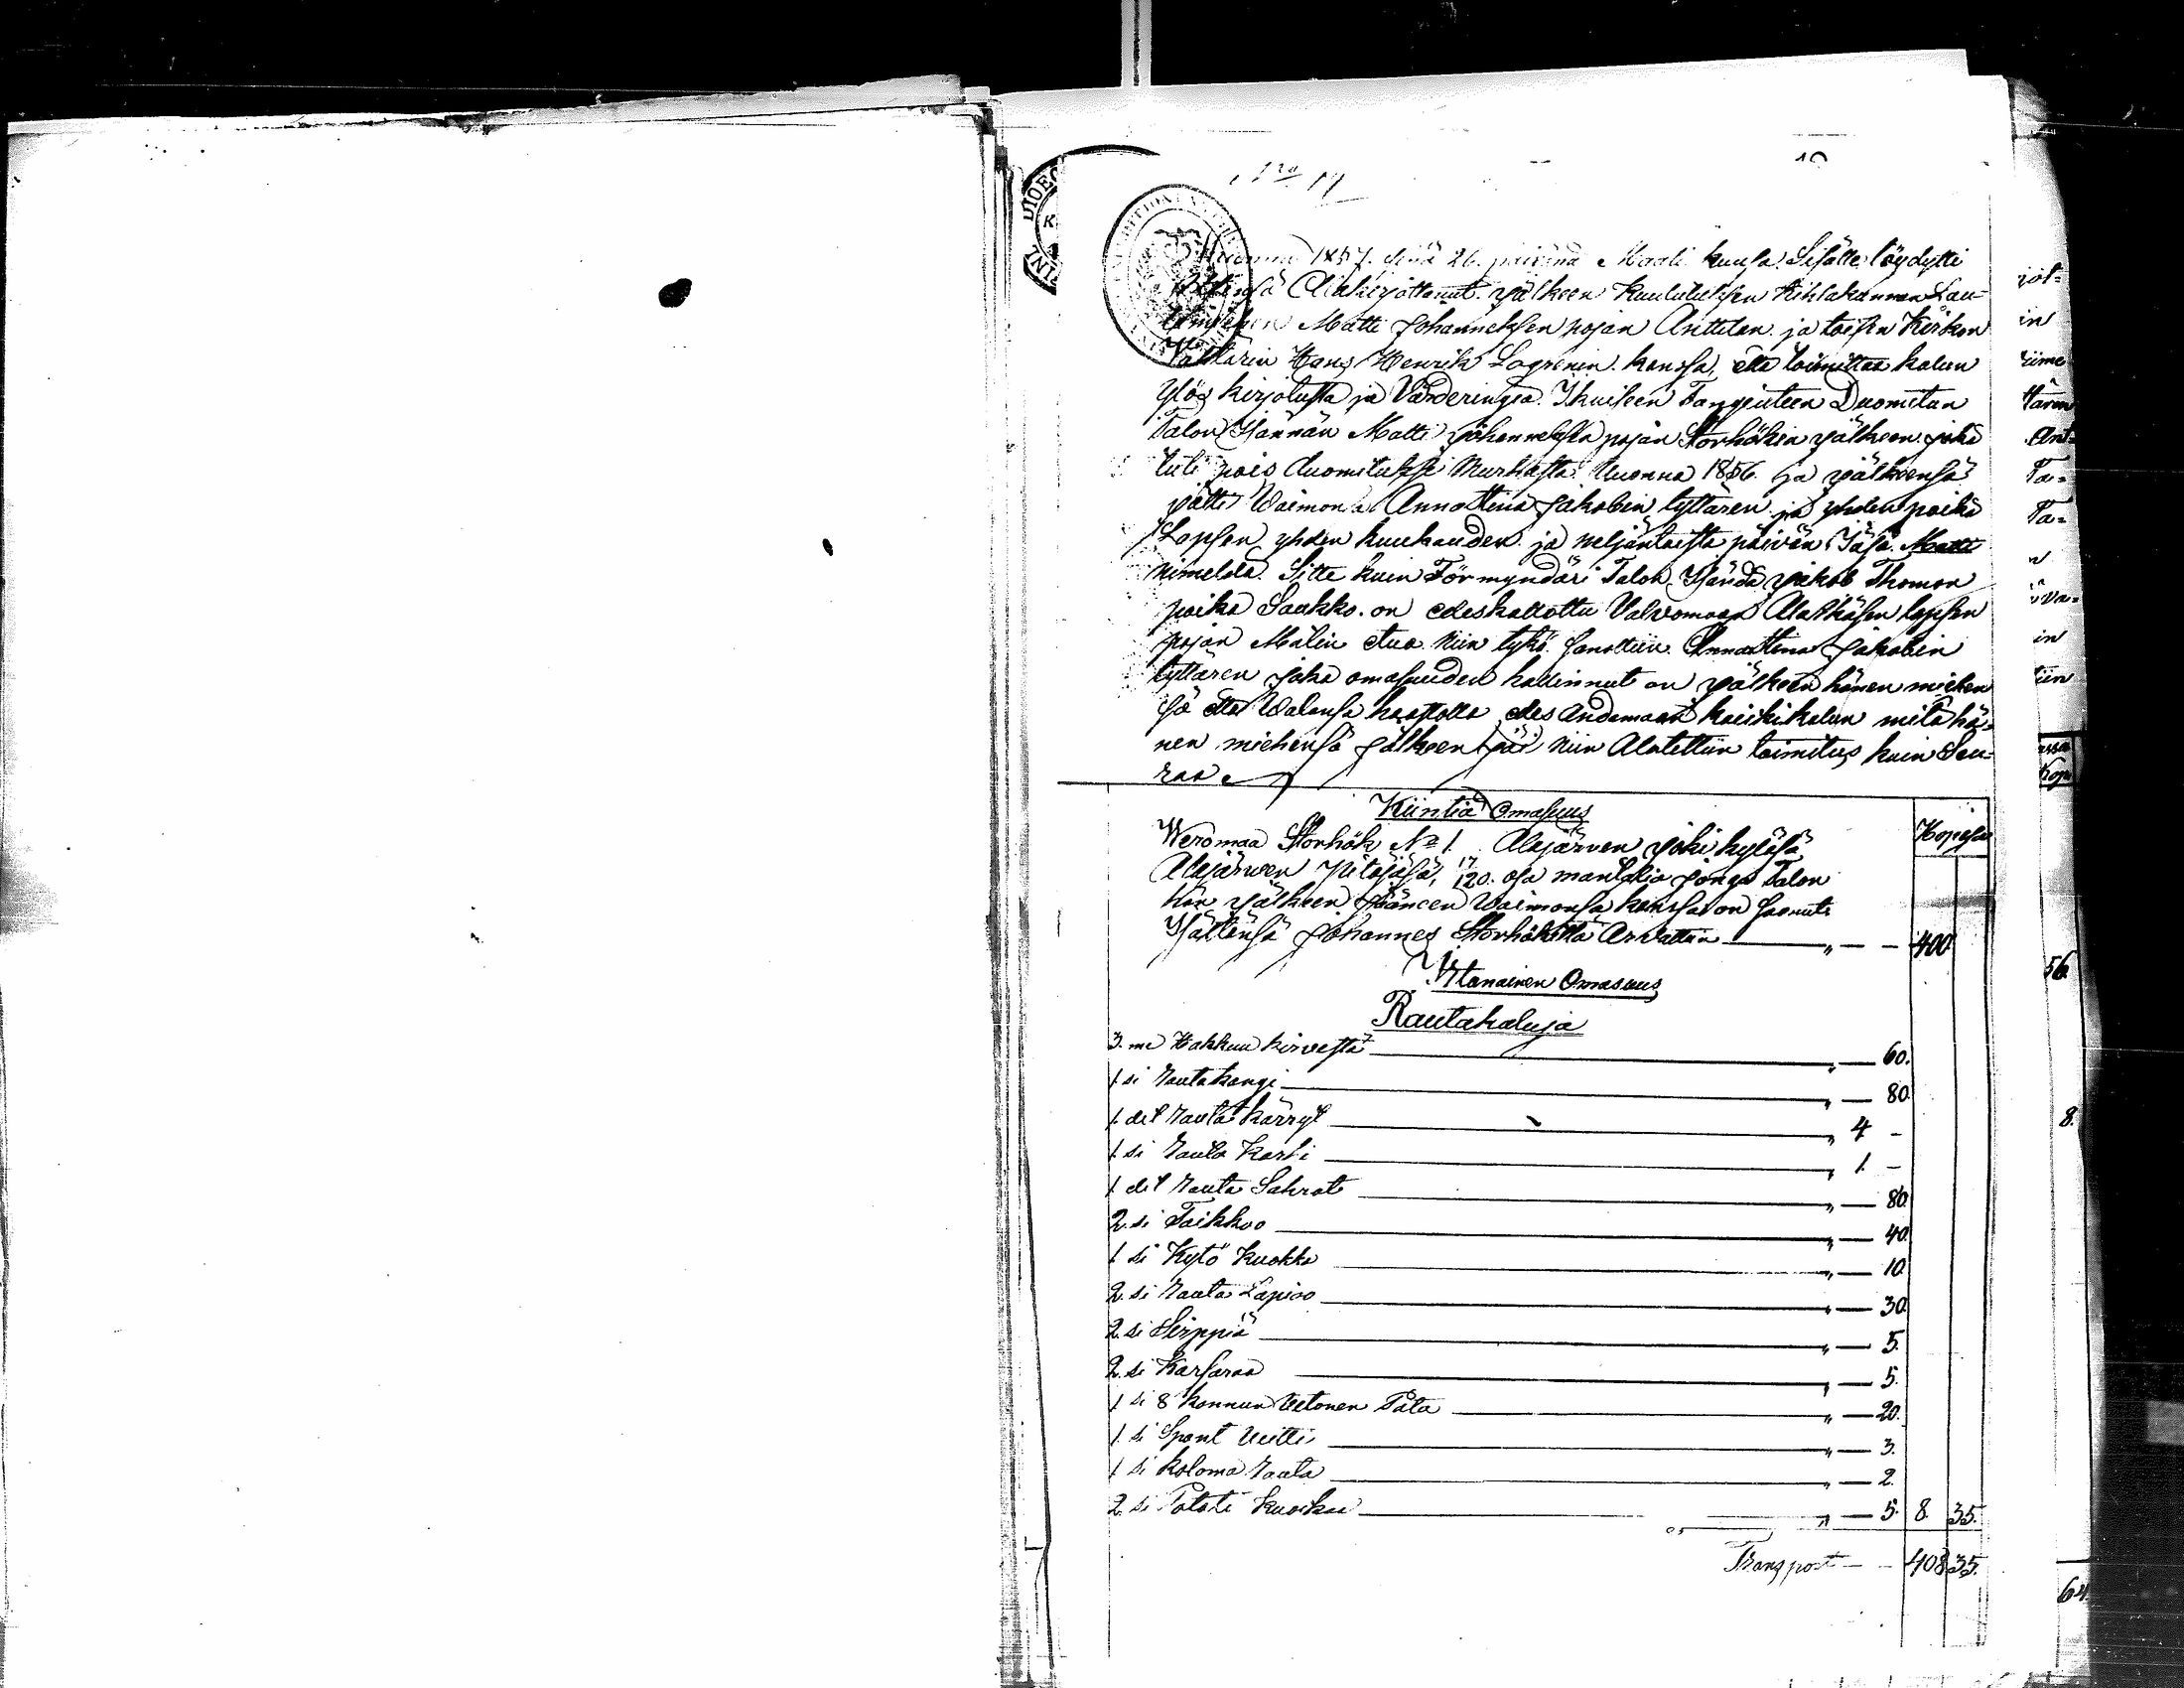 Vuonna 1857. sinä 26. päivänä Maali kuusa. Sisälle löydytti
Allakirjottanut. jälkeen kuulutuksen Kihlakunnan Lau-
Matti Johanneksen pojan Anttilan ja toisen Kirkon
Värtärin Hans Henrik Lagrenin kanssa, että toimittaa kalun
Ylös kirjotusta ja Värderingiä. Ikuiseen Fangiuteen Duomitun
Talon Isännän Matti Johanneksen pojan Storhökin jälkeen joka
tuli pois duomituksi Murhasta. Vuonna 1856. ja jälkeensä
jätti Waimonsa Annastiina Jakobin tyttären ja yhden poika
Lapsen yhden kuukauden ja neljäntoista päivän Jäsä. Matti
nimeldä. Sitte kuin Förmyndäri Talon Isändä Jakob Thomon
poika Saukko. on edeskattottu Valvomaan Alaikäsen lapsen
pojan Matin etua. Niin tykö. sanottiin Annastina Jakobin
tyttären joka omasuuden hallinnut on jälkeen hänen miehen
sä että Walansa haastolla edes andamaan kaicki kalun mitä hä-
nen miehensä jälkeen jäi niin Alotettiin toimitus kuin Seu-
raa.
Kiintiä Omasuus
Kopeka
Weromaa Storhök No 1. Alajärven joki kylässä
Alajärwen Pitäjäsä, 17/120. osa mantalia jonga Talon
hän jälkeen hänen Waimonsa kanssa on saanut
Isältänsä Johannes Storhökiltä Arvattiin " — — 400
Irtanainen Omasuus
Rautakaluja
3. me Hakkuu kirvestä " — 60.
1 si Rautakangi " — 80.
1. det Rauta kärryt " 4 –
1 si Rauta Karhi " 1. –
1 det Rauta Sahrat " — 80.
2. si Taikkoo " — 40.
1 si Kytö Kuokka " — 10.
2. si Rauta Lapioo " — 30.
2 si Sirppiä " — 5.
2. si Karsaraa " — 5.
1 si 8 kannun Vetonen Pata " — 20.
1. si Spont Veitti " — 3.
1 si koloma Rauta " — 2.
2. si Potati kuokaa " — 5. 8. 35.
Transport — — 408 35.